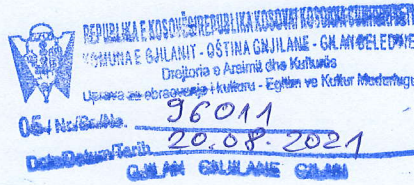 REPUBLIKA E KOSOVËS/REPUBLIKA KOSOVA/ KOSOVA CUMHURIYETI
KOMUNA E GJILANIT - OPŠTINA GNJILANE - GILAN BELEDIYE
Drejtoria e Arsimit dhe Kulturës
Uprava za obrazovanje i kulturu - Eğitim ve Kultur Mudurlugu
05/ Nr/Br/No. 96011
Data/Datum/Tarih 20.08.2021
GJILAN GNJILANE GILAN